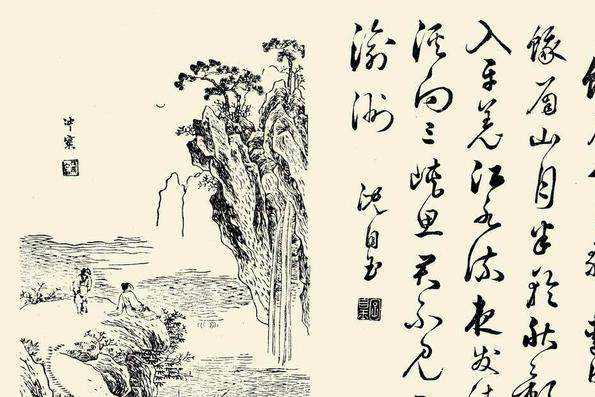 峨眉山月半轮秋影
入平羌江水流夜发
溪向三峡思君不见
渝洲
沈自玉
冲寰